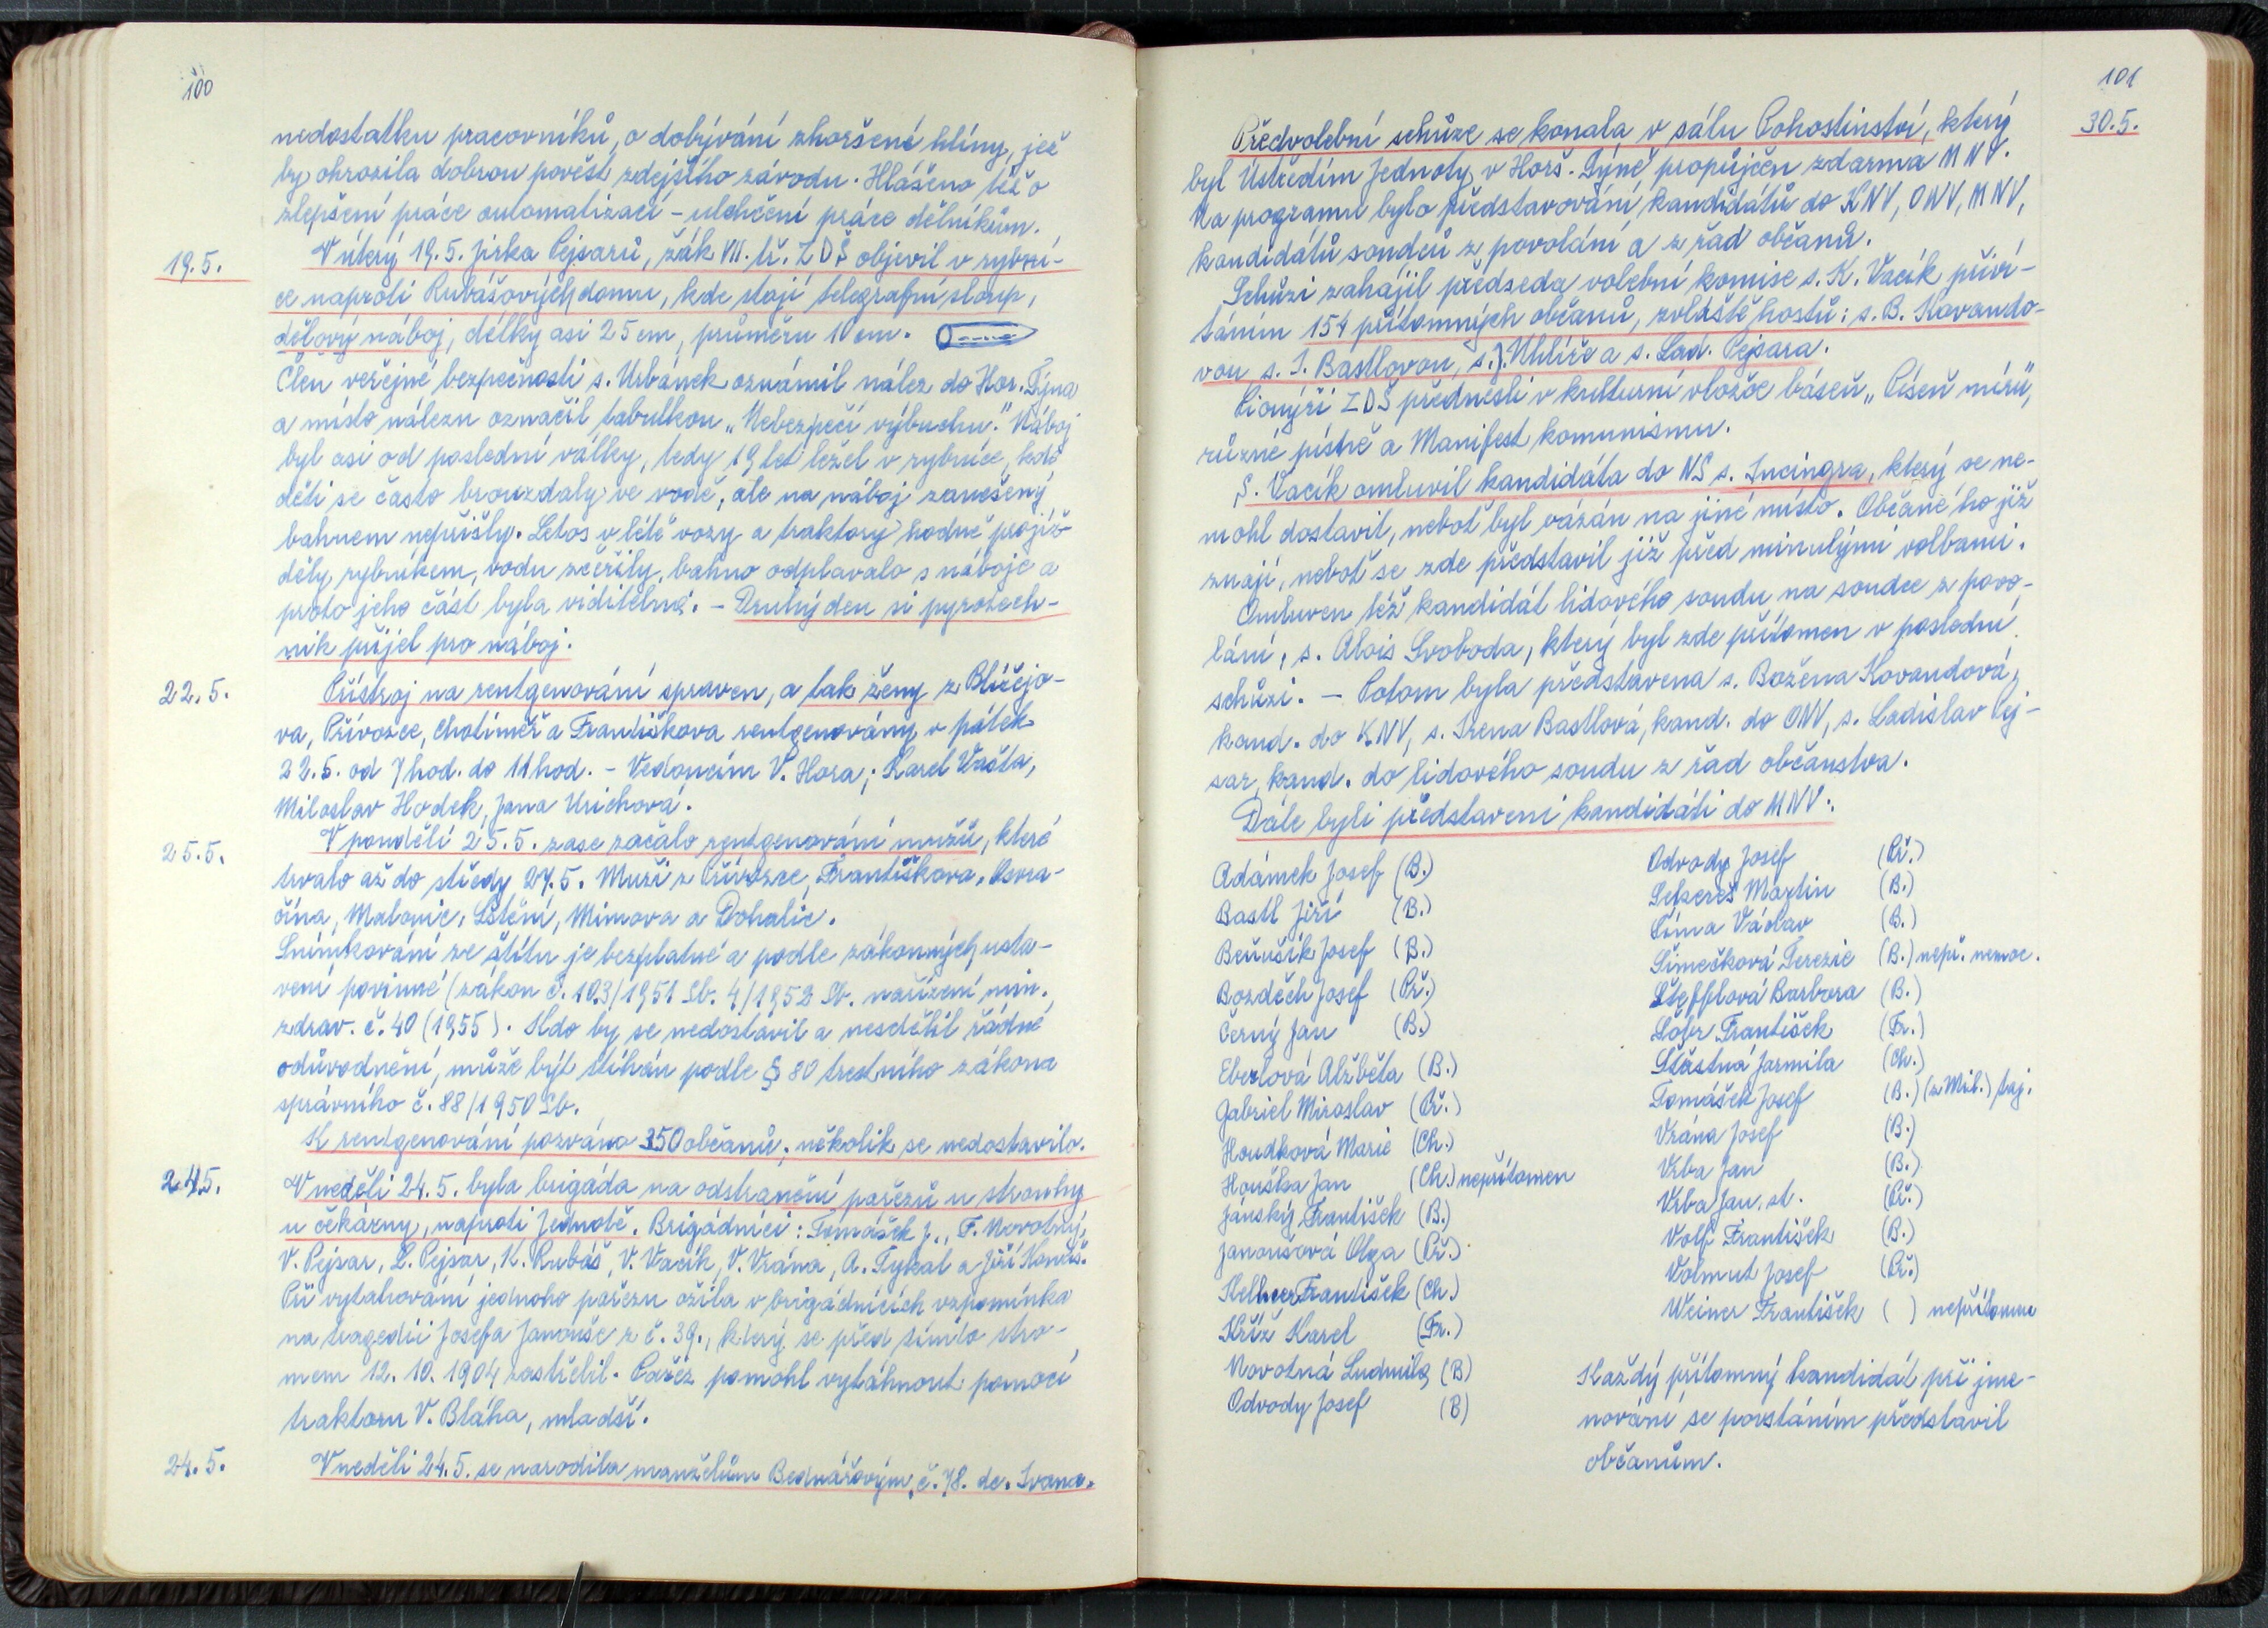 100
nedostatku pracovníků, o dobývání zhoršené hlíny, jež
by ohrozila dobrou pověst zdejšího závodu. Hlášeno též o
zlepšení práce automatizací – ulehčení práce dělníkům.
19.5.
V úterý 19.5. Jirka Pejsarů, žák VII. tř. ZDŠ objevil v rybní-
ce naproti Rubášových domu, kde stojí telegrafní sloup,
dělový náboj, délky asi 25 cm, průměru 10 cm.
Člen veřejné bezpečnosti s. Urbánek oznámil nález do Hor. Týna
a místo nálezu označil tabulkou „Nebezpečí výbuchu." Náboj
byl asi od poslední války, tedy 19 let ležel v rybníce, kde
děti se často brouzdaly ve vodě, ale na náboj zanešený
bahnem nepřišly. Letos v létě vozy a traktory hodně projíž-
děly rybníkem, vodu zčeřily, bahno odplavalo s náboje a
proto jeho část byla viditelná. – Druhý den si pyrotech-
nik přijel pro náboj.
22.5.
Přístroj na rentgenování spraven, a tak ženy z Blížejo-
va, Přívozce, Chotiměř a Františkova rentgenovány v pátek
22.5. od 7 hod. do 11 hod. – Vedoucím V. Hora; Karel Vačta,
Miloslav Hodek, Jana Urichová.
25.5.
V pondělí 25.5. zase začalo rentgenování mužů, které
trvalo až do středy 27.5. Muži z Přívozce, Františkova, Osvra-
čína, Malonic, Lštění, Mimova a Dohalic.
Snímkování ze štítu je bezplatné a podle zákonných usta-
vení povinné (zákon č. 103/1951 Sb. 4/1952 Sb. nařízení min.
zdrav. č. 40 (1955). Kdo by se nedostavil a nesdělil řádné
odůvodnění, může být stíhán podle § 80 trestního zákona
správního č. 88/1950 Sb.
K rentgenování pozváno 350 občanů; několik se nedostavilo.
24.5.
V neděli 24.5. byla brigáda na odstranění pařezů u strouhy
u čekárny, naproti Jednotě. Brigádníci: Tomášek J., F. Novotný,
V. Pejsar, L. Pejsar, K. Rubáš, V. Vacík, V. Vrána, A. Tykal a Jiří
Při vytahování jednoho pařezu ožila v brigádnících vzpomínka
na tragedii Josefa Janouše z č. 39., který se před tímto stro-
mem 12. 10. 1904 zastřelil. Pařez pomohl vytáhnout pomocí
traktoru V. Bláha, mladší.
24.5.
V neděli 24.5. se narodila manželům Bednářovým, č. 78. dc. Ivana.
101
30.5.
Předvolební schůze se konala v sálu Pohostinství, který
byl Ústředím Jednoty v Horš. Týně propůjčen zdarma MNV.
Na programu bylo představování kandidátů do KNV, ONV, MNV,
kandidátů soudců z povolání a z řad občanů.
Schůzi zahájil předseda volební komise s. K. Vacík přiví-
táním 154 přítomných občanů, zvláště hostů: s. B. Kovando-
vou s. I. Bastlovou, s. J. Uhlíře a s. Lad. Pejsara.
Pionýři ZDŠ přednesli v kulturní vložce báseň „Píseň míru",
různé písně a Manifest komunismu.
S. Vacík omluvil kandidáta do NS s. Incingra, který se ne-
mohl dostavit, neboť byl vázán na jiné místo. Občané ho již
znají, neboť se zde představil již před minulými volbami.
Omluven též kandidát lidového soudu na soudce z povo-
lání, s. Alois Svoboda, který byl zde přítomen v poslední
schůzi. – Potom byla představena s. Božena Kovandová,
kand. do KNV, s. Irena Bastlová, kand. do ONV, s. Ladislav Pej-
sar, kand. do lidového soudu z řad občanstva.
Dále byli představeni kandidáti do MNV:
Adámek Josef (B.)
Bastl Jiří (B.)
Beňušík Josef (B.)
Bozděch Josef (Př.)
Černý Jan (B.)
Eberlová Alžběta (B.)
Gabriel Miroslav (Př.)
Houdková Marie (Ch.)
Houška Jan (Ch.) nepřítomen
Jánský František (B.)
Janoušová Olga (Př.)
Kellner František (Ch.)
Kříž Karel (Fr.)
Novotná Ludmila (B)
Odvody Josef (B)
Odvody Josef (Př.)
Sekereš Martin (B.)
Síma Václav (B.)
Šimečková Terezie (B.) nepř. nemoc.
Štefflová Barbora (B.)
Šófr František (Fr.)
Šťastná Jarmila (Ch.)
Tomášek Josef (B.) (z Mil.) taj.
Vrána Josef (B.)
Vrba Jan (B.)
Vrba Jan, st. (Př.)
Volf František (B.)
Volmut Josef (Př.)
Weiner František ( ) nepřítomen
Každý přítomný kandidát při jme-
nování se povstáním představil
občanům.